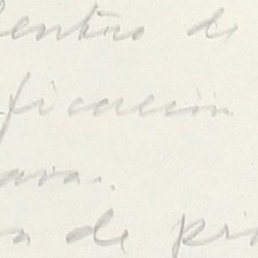 dentro de
ficación
ara.
a de pri